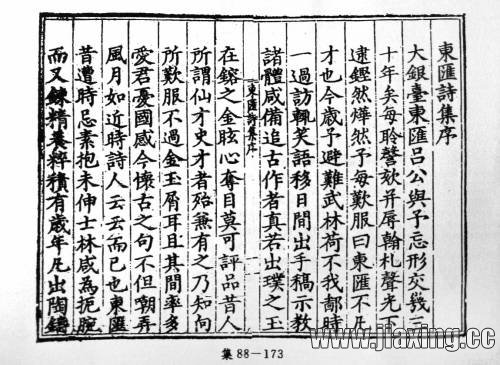 東匯詩集序
大銀臺東匯呂公與予忘形交幾三
十年矣每聆謦欬并辱翰札聲光下
逮鏗然燁然予每歎服曰東匯不凡
才也今歲予避難武林荷不我鄙時
一過訪輒笑語移日間出手稿示教
諸體咸備追古作者真若出璞之玉
東匯詩集序 一
在鎔之金眩心奪目莫可評品昔人
所謂仙才史才者殆兼有之乃知向
所歎服不過金玉屑耳且其間率多
愛君憂國感今懷古之句不但嘲弄
風月如近時詩人云云而已也東匯
昔遭時忌素抱未伸士林咸為扼腕
而又鍊精養粹積有歲年凡出陶鑄
集 88—173
www.jiaxing.cc